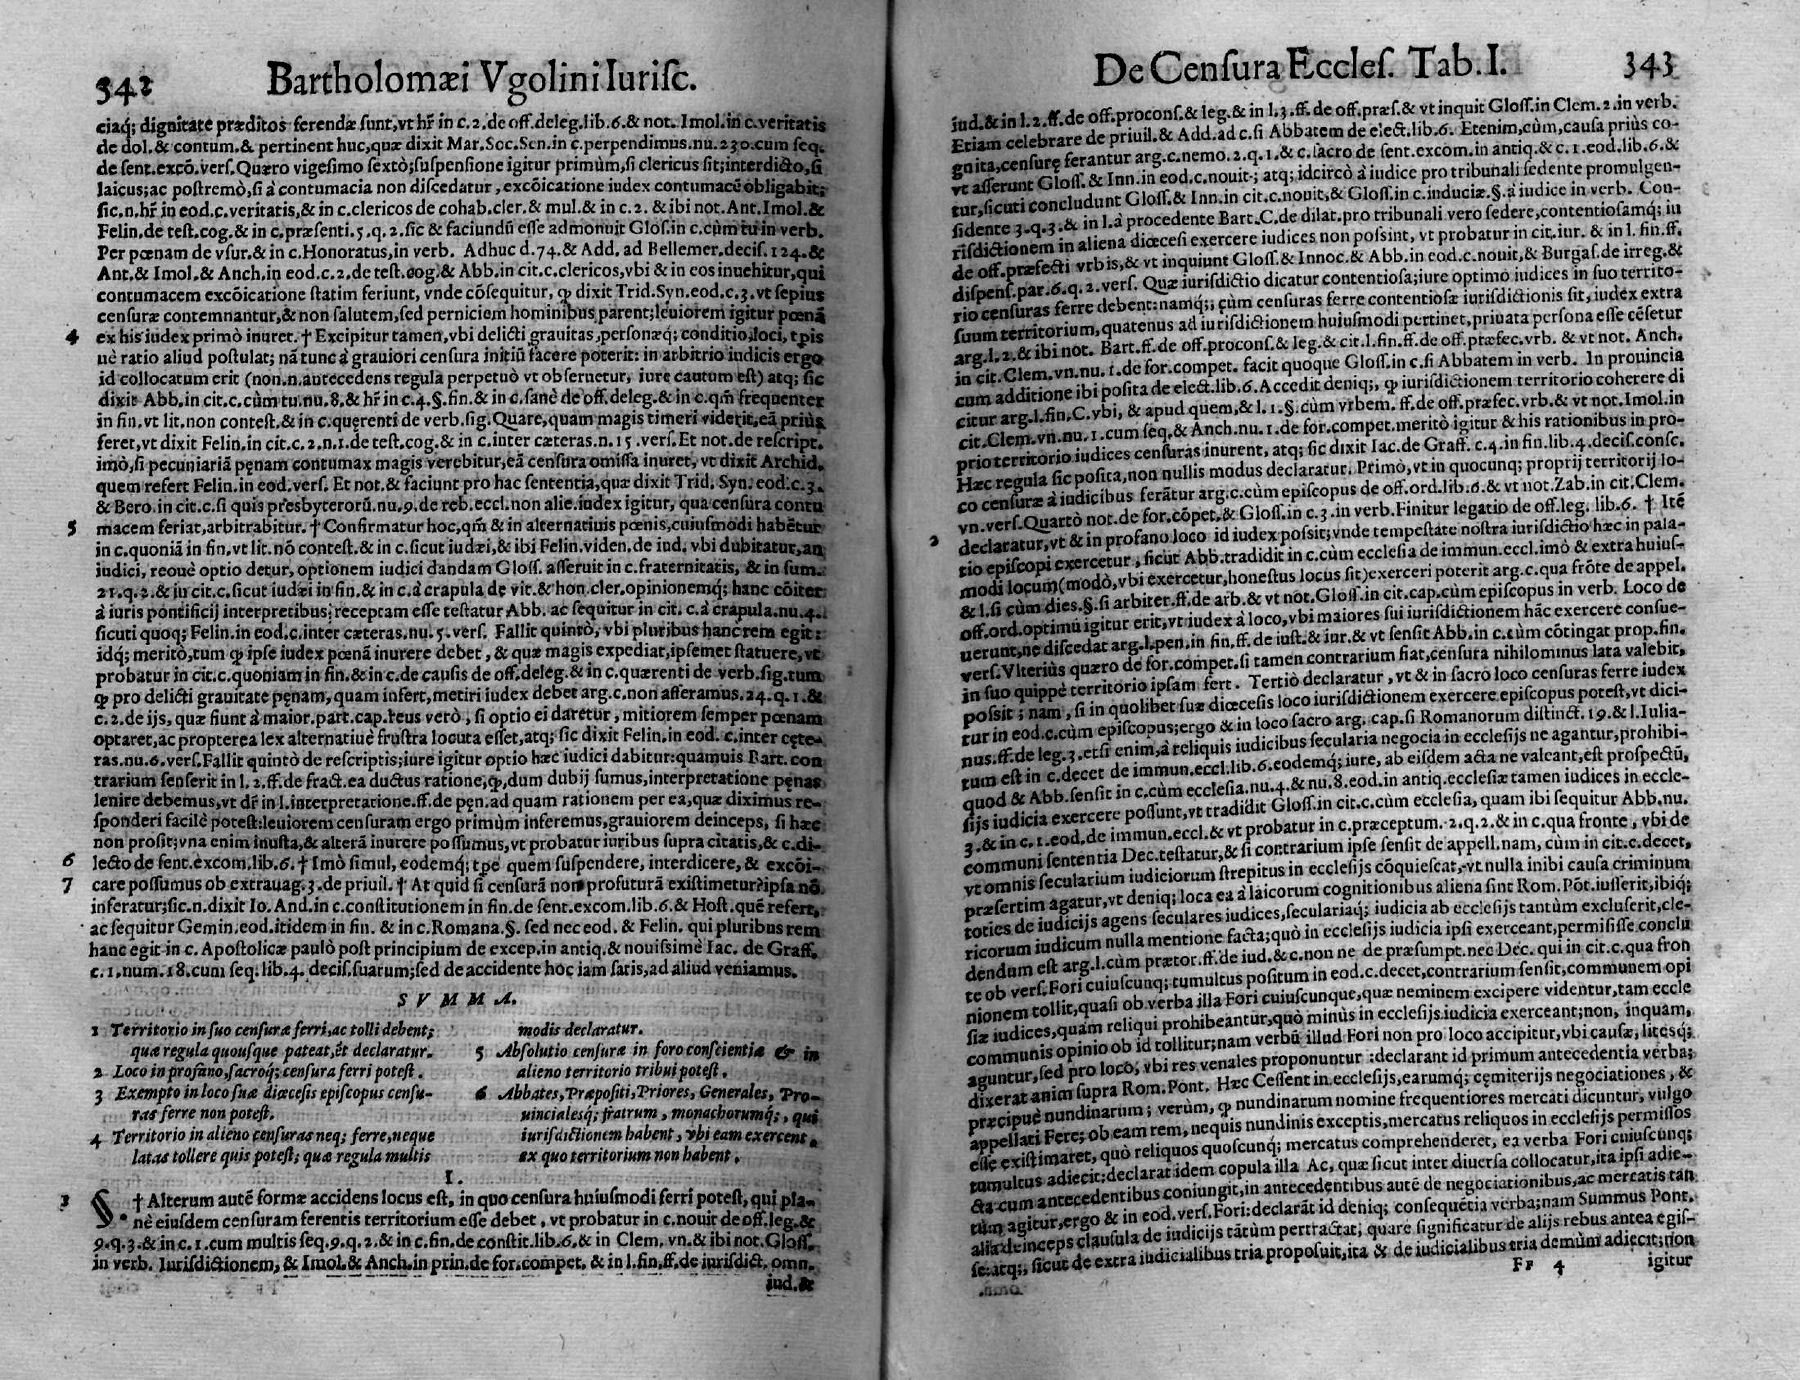 342 Bartholomæi Vgolini Iurisc.
ciaq; dignitate præditos ferendæ sunt, vt hr̃ in c.2.de off.deleg.lib.6.& not. Imol.in c.veritatis
de dol.& contum.& pertinent huc,quæ dixit Mar.Soc.Sen.in c.perpendimus.nu.230.cum seq.
de sent.excõ.vers.Quæro vigesimo sextò;suspensione igitur primùm,si clericus sit;interdicto,si
laicus;ac postremò,si à contumacia non discedatur,excõicatione iudex contumacẽ obligabit;
sic.n.hr̃ in eod.c.veritatis,& in c.clericos de cohab.cler.& mul.& in c.2. & ibi not.Ant.Imol.&
Felin.de test.cog.& in c.præsenti.5.q.2.sic & faciundũ esse admonuit Glos.in c.cùm tu in verb.
Per pœnam de vsur.& in c.Honoratus,in verb. Adhuc d.74.& Add, ad Bellemer.decis.124.&
Ant.& Imol.& Anch.in eod.c.2.de test.cog.& Abb.in cit.c.clericos,vbi & in eos inuehitur,qui
contumacem excõicatione statim feriunt, vnde cõsequitur, ꝙ dixit Trid.Syn.eod.c.3.vt sepius
censuræ contemnantur,& non salutem,sed perniciem hominibus parent;leuiorem igitur pœnã
4 ex his iudex primò inuret.† Excipitur tamen,vbi delicti grauitas,personæq; conditio,loci, tpis
uè ratio aliud postulat; nã tunc à grauiori censura initiũ facere poterit: in arbitrio iudicis ergo
id collocatum erit (non.n.antecedens regula perpetuò vt obseruetur, iure cautum est) atq; sic
dixit Abb.in cit.c.cùm tu.nu.8.& hr̃ in c.4.§.fin.& in c.sanè de off.deleg.& in c.qm̃ frequenter
in fin.vt lit.non contest.& in c.quęrenti de verb.sig.Quare,quam magis timeri viderit,eã priùs
feret,vt dixit Felin.in cit.c.2.n.1.de test.cog.& in c.inter cæteras.n.15.vers.Et not.de rescript.
imò,si pecuniariã pęnam contumax magis verebitur,eã censura omissa inuret, vt dixit Archid.
quem refert Felin.in eod.vers. Et not.& faciunt pro hac sententia,quæ dixit Trid. Syn. eod.c.3.
& Bero.in cit.c.si quis presbyterorũ.nu.9.de reb.eccl.non alie.iudex igitur, qua censura contu
5 macem feriat,arbitrabitur.† Confirmatur hoc,qm̃ & in alternatiuis pœnis,cuiusmodi habẽtur
in c.quoniã in fin.vt lit.nõ contest.& in c.sicut iudæi,& ibi Felin.viden.de iud. vbi dubitatur,an
iudici, reouè optio detur, optionem iudici dandam Gloss. asseruit in c.fraternitatis, & in sum.
21.q.2.& in cit.c.sicut iudæi in fin.& in c.à crapula de vit.& hon.cler.opinionemq; hanc cõiter
à iuris pontificij interpretibus receptam esse testatur Abb. ac sequitur in cit. c.à crapula.nu.4.
sicuti quoq; Felin.in eod.c.inter cæteras.nu.5.vers. Fallit quintò, vbi pluribus hanc rem egit:
idq; meritò,tum ꝙ ipse iudex pœnã inurere debet, & quæ magis expediat,ipsemet statuere, vt
probatur in cit.c.quoniam in fin.& in c.de causis de off.deleg.& in c.quærenti de verb.sig.tum
ꝙ pro delicti grauitate pęnam, quam infert, metiri iudex debet arg.c.non afferamus.24.q.1.&
c.2.de ijs, quæ fiunt à maior.part.cap.reus verò, si optio ei daretur, mitiorem semper pœnam
optaret,ac propterea lex alternatiuè frustra locuta esset,atq; sic dixit Felin.in eod. c.inter cęte-
ras.nu.6.vers.Fallit quintò de rescriptis;iure igitur optio hæc iudici dabitur:quamuis Bart.con
trarium senserit in l.2.ff.de fract.ea ductus ratione,ꝙ,dum dubij sumus,interpretatione pęnas
lenire debemus,vt dr̃ in l.interpretatione.ff.de pęn.ad quam rationem per ea,quæ diximus re-
sponderi facilè potest:leuiorem censuram ergo primùm inferemus,grauiorem deinceps, si hæc
non prosit;vna enim inusta,& alterã inurere possumus,vt probatur iuribus supra citatis,& c.di-
6 lecto de sent.excom.lib.6.† Imò simul, eodemq; tpe quem suspendere, interdicere, & excõi-
7 care possumus ob extrauag.3.de priuil.† At quid si censurã non profuturã existimetur?ipsa nõ
inferatur;sic.n.dixit Io. And.in c.constitutionem in fin.de sent.excom.lib.6.& Host.quẽ refert,
ac sequitur Gemin.eod.itidem in fin. & in c.Romana.§. sed nec eod. & Felin. qui pluribus rem
hanc egit in c. Apostolicæ paulò post principium de excep.in antiq.& nouissimè Iac. de Graff.
c.1.num.18.cum seq.lib.4. decis.suarum;sed de accidente hoc iam satis,ad aliud veniamus.
SVMMA.
1 Territorio in suo censuræ ferri,ac tolli debent;
quæ regula quousque pateat,& declaratur.
2 Loco in profano,sacroq; censura ferri potest.
3 Exempto in loco suæ diœcesis episcopus censu-
ras ferre non potest.
4 Territorio in alieno censuras neq; ferre,neque
latas tollere quis potest; quæ regula multis
modis declaratur.
5 Absolutio censuræ in foro conscientiæ & in
alieno territorio tribui potest.
6 Abbates,Præpositi,Priores, Generales, Pro-
uincialesq; fratrum, monachorumq;, qui
iurisdictionem habent, vbi eam exercent,
ex quo territorium non habent.
1.
§. † Alterum autẽ formæ accidens locus est, in quo censura huiusmodi ferri potest, qui pla-
nè eiusdem censuram ferentis territorium esse debet, vt probatur in c.nouit de off.leg.&
9.q.3.& in c.1.cum multis seq.9.q.2.& in c.fin.de constit.lib.6.& in Clem. vn.& ibi not.Gloss.
in verb. Iurisdictionem, & Imol.& Anch.in prin.de for.compet. & in l.fin.ff.de iurisdict. omn.
iud.&
De Censura Eccles. Tab. I. 343
iud.& in l.2.ff.de off.procons.& leg.& in l.3.ff.de off.præs.& vt inquit Gloss.in Clem.2.in verb.
Etiam celebrare de priuil.& Add.ad c.si Abbatem de elect.lib.6. Etenim,cùm,causa priùs co-
gnita,censurę ferantur arg.c.nemo.2.q.1.& c.sacro de sent.excom.in antiq.& c.1.eod.lib.6.&
vt asserunt Gloss.& Inn.in eod.c.nouit; atq; idcircò à iudice pro tribunali sedente promulgen-
tur,sicuti concludunt Gloss.& Inn.in cit.c.nouit,& Gloss.in c.induciæ.§.à iudice in verb. Con-
sidente 3.q.3.& in l.à procedente Bart.C.de dilat.pro tribunali vero sedere,contentiosamq; iu
risdictionem in aliena diœcesi exercere iudices non possint, vt probatur in cit.iur. & in l. fin.ff.
de off.præfecti vrbis,& vt inquiunt Gloss.& Innoc.& Abb.in eod.c.nouit,& Burgas.de irreg.&
dispens.par.6.q.2.vers. Quæ iurisdictio dicatur contentiosa;iure optimo iudices in suo territo-
rio censuras ferre debent:namq;, cùm censuras ferre contentiosæ iurisdictionis sit, iudex extra
suum territorium, quatenus ad iurisdictionem huiusmodi pertinet,priuata persona esse cẽsetur
arg.l.2.& ibi not. Bart.ff.de off.procons.& leg.& cit.l.fin.ff.de off.præfec.vrb. & vt not. Anch.
in cit.Clem.vn.nu.1.de for.compet. facit quoque Gloss.in c.si Abbatem in verb. In prouincia
cum additione ibi posita de elect.lib.6.Accedit deniq;, ꝙ iurisdictionem territorio coherere di
citur arg.l.fin.C.vbi, & apud quem,& l.1.§.cùm vrbem. ff.de off.præfec.vrb.& vt not.Imol.in
cit.Clem.vn.nu.1.cum seq.& Anch.nu.1.de for.compet.meritò igitur & his rationibus in pro-
prio territorio iudices censuras inurent, atq; sic dixit Iac.de Graff. c.4.in fin.lib.4.decis.consc.
Hæc regula sic posita,non nullis modus declaratur. Primò,vt in quocunq; proprij territorij lo-
co censuræ à iudicibus ferãtur arg.c.cùm episcopus de off.ord.lib.6.& vt not.Zab.in cit.Clem.
vn.vers.Quartò not.de for.cõpet.& Gloss.in c.3.in verb.Finitur legatio de off.leg. lib.6. † Itẽ
2 declaratur,vt & in profano loco id iudex possit;vnde tempestate nostra iurisdictio hæc in pala-
tio episcopi exercetur, sicut Abb.tradidit in c.cùm ecclesia de immun.eccl.imò & extra huius-
modi locum(modò,vbi exercetur,honestus locus sit)exerceri poterit arg.c.qua frõte de appel.
& l.si cùm dies.§.si arbiter.ff.de arb.& vt not.Gloss.in cit.cap.cùm episcopus in verb. Loco de
off.ord.optimũ igitur erit,vt iudex à loco,vbi maiores sui iurisdictionem hãc exercere consue-
uerunt,ne discedat arg.l.pen.in fin.ff.de iust.& iur.& vt sensit Abb.in c.cùm cõtingat prop.fin.
vers.Vlteriùs quæro de for.compet.si tamen contrarium fiat,censura nihilominus lata valebit,
in suo quippè territorio ipsam fert. Tertiò declaratur, vt & in sacrò loco censuras ferre iudex
possit; nam, si in quolibet suæ diœcesis loco iurisdictionem exercere episcopus potest,vt dici-
tur in eod.c.cùm episcopus;ergo & in loco sacro arg. cap.si Romanorum distinct.19.& l.Iulia-
nus.ff.de leg.3.etsi enim,à reliquis iudicibus secularia negocia in ecclesijs ne agantur,prohibi-
tum est in c.decet de immun.eccl.lib.6.eodemq; iure, ab eisdem acta ne valeant,est prospectũ,
quod & Abb.sensit in c.cùm ecclesia.nu.4.& nu.8.eod.in antiq.ecclesiæ tamen iudices in eccle-
sijs iudicia exercere possunt,vt tradidit Gloss.in cit.c.cùm ecclesia, quam ibi sequitur Abb.nu.
3.& in c.1.eod.de immun.eccl.& vt probatur in c.præceptum.2.q.2.& in c.qua fronte, vbi de
communi sententia Dec.testatur,& si contrarium ipse sensit de appell.nam, cùm in cit.c.decet,
vt omnis secularium iudiciorum strepitus in ecclesijs cõquiescat,vt nulla inibi causa criminum
præsertim agatur,vt deniq; loca ea à laicorum cognitionibus aliena sint Rom.Põt.iusserit,ibiq;
toties de iudicijs agens seculares iudices,seculariaq; iudicia ab ecclesijs tantùm excluserit,cle-
ricorum iudicum nulla mentione facta;quò in ecclesijs iudicia ipsi exerceant,permisisse conclu
dendum est arg.l.cùm prætor.ff.de iud.& c.non ne de præsumpt.nec Dec. qui in cit.c.qua fron
te ob vers.Fori cuiuscunq; tumultus positum in eod.c.decet,contrarium sensit,communem opi
nionem tollit,quasi ob verba illa Fori cuiuscunque,quæ neminem excipere videntur,tam eccle
siæ iudices,quàm reliqui prohibeantur,quò minùs in ecclesijs iudicia exerceant;non, inquam,
communis opinio ob id tollitur;nam verbũ illud Fori non pro loco accipitur,vbi causæ, litesq;
aguntur,sed pro loco, vbi res venales proponuntur :declarant id primum antecedentia verba;
dixerat anim supra Rom.Pont. Hæc Cessent in ecclesijs,earumq; cęmiterijs negociationes, &
præcipuè nundinarum; verùm, ꝙ nundinarum nomine frequentiores mercati dicuntur, vulgo
appellati Fere; ob eam rem, nequis nundinis exceptis,mercatus reliquos in ecclesijs permissos
esse existimaret, quò reliquos quoscunq; mercatus comprehenderet, ea verba Fori cuiuscunq;
tumultus adiecit:declarat idem copula illa Ac, quæ sicut inter diuersa collocatur,ita ipsi adie-
cta cum antecedentibus coniungit,in antecedentibus autẽ de negociationibus,ac mercatis tan
tùm agitur,ergo & in eod.vers.Fori:declarãt id deniq; consequẽtia verba;nam Summus Pont.
alia deinceps clausula de iudicijs tãtùm pertractat; quare significatur de alijs rebus antea egis-
se:atq;, sicut de extra iudicialibus tria proposuit,ita & de iudicialibus tria demùm adiecit;non
Ff 4 igitur